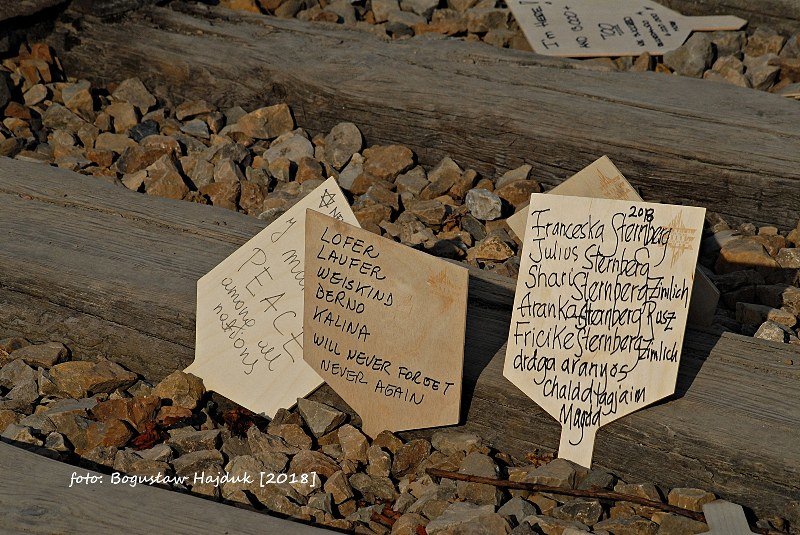 I'm HERE!
y ma
PEACE
among all
nations
LOFER
LAUFER
WEISKIND
DERNO
KALINA
WILL NEVER FORGET
NEVER AGAIN
2018
Franceska Sternberg
Julius Sternberg
Shari Sternberg Zimlich
Aranka Sternberg Rusz
Fricike Sternberg Zimlich
drága aranyos
Chaládtagjaim
Magda
foto: Bogusław Hajduk [2018]